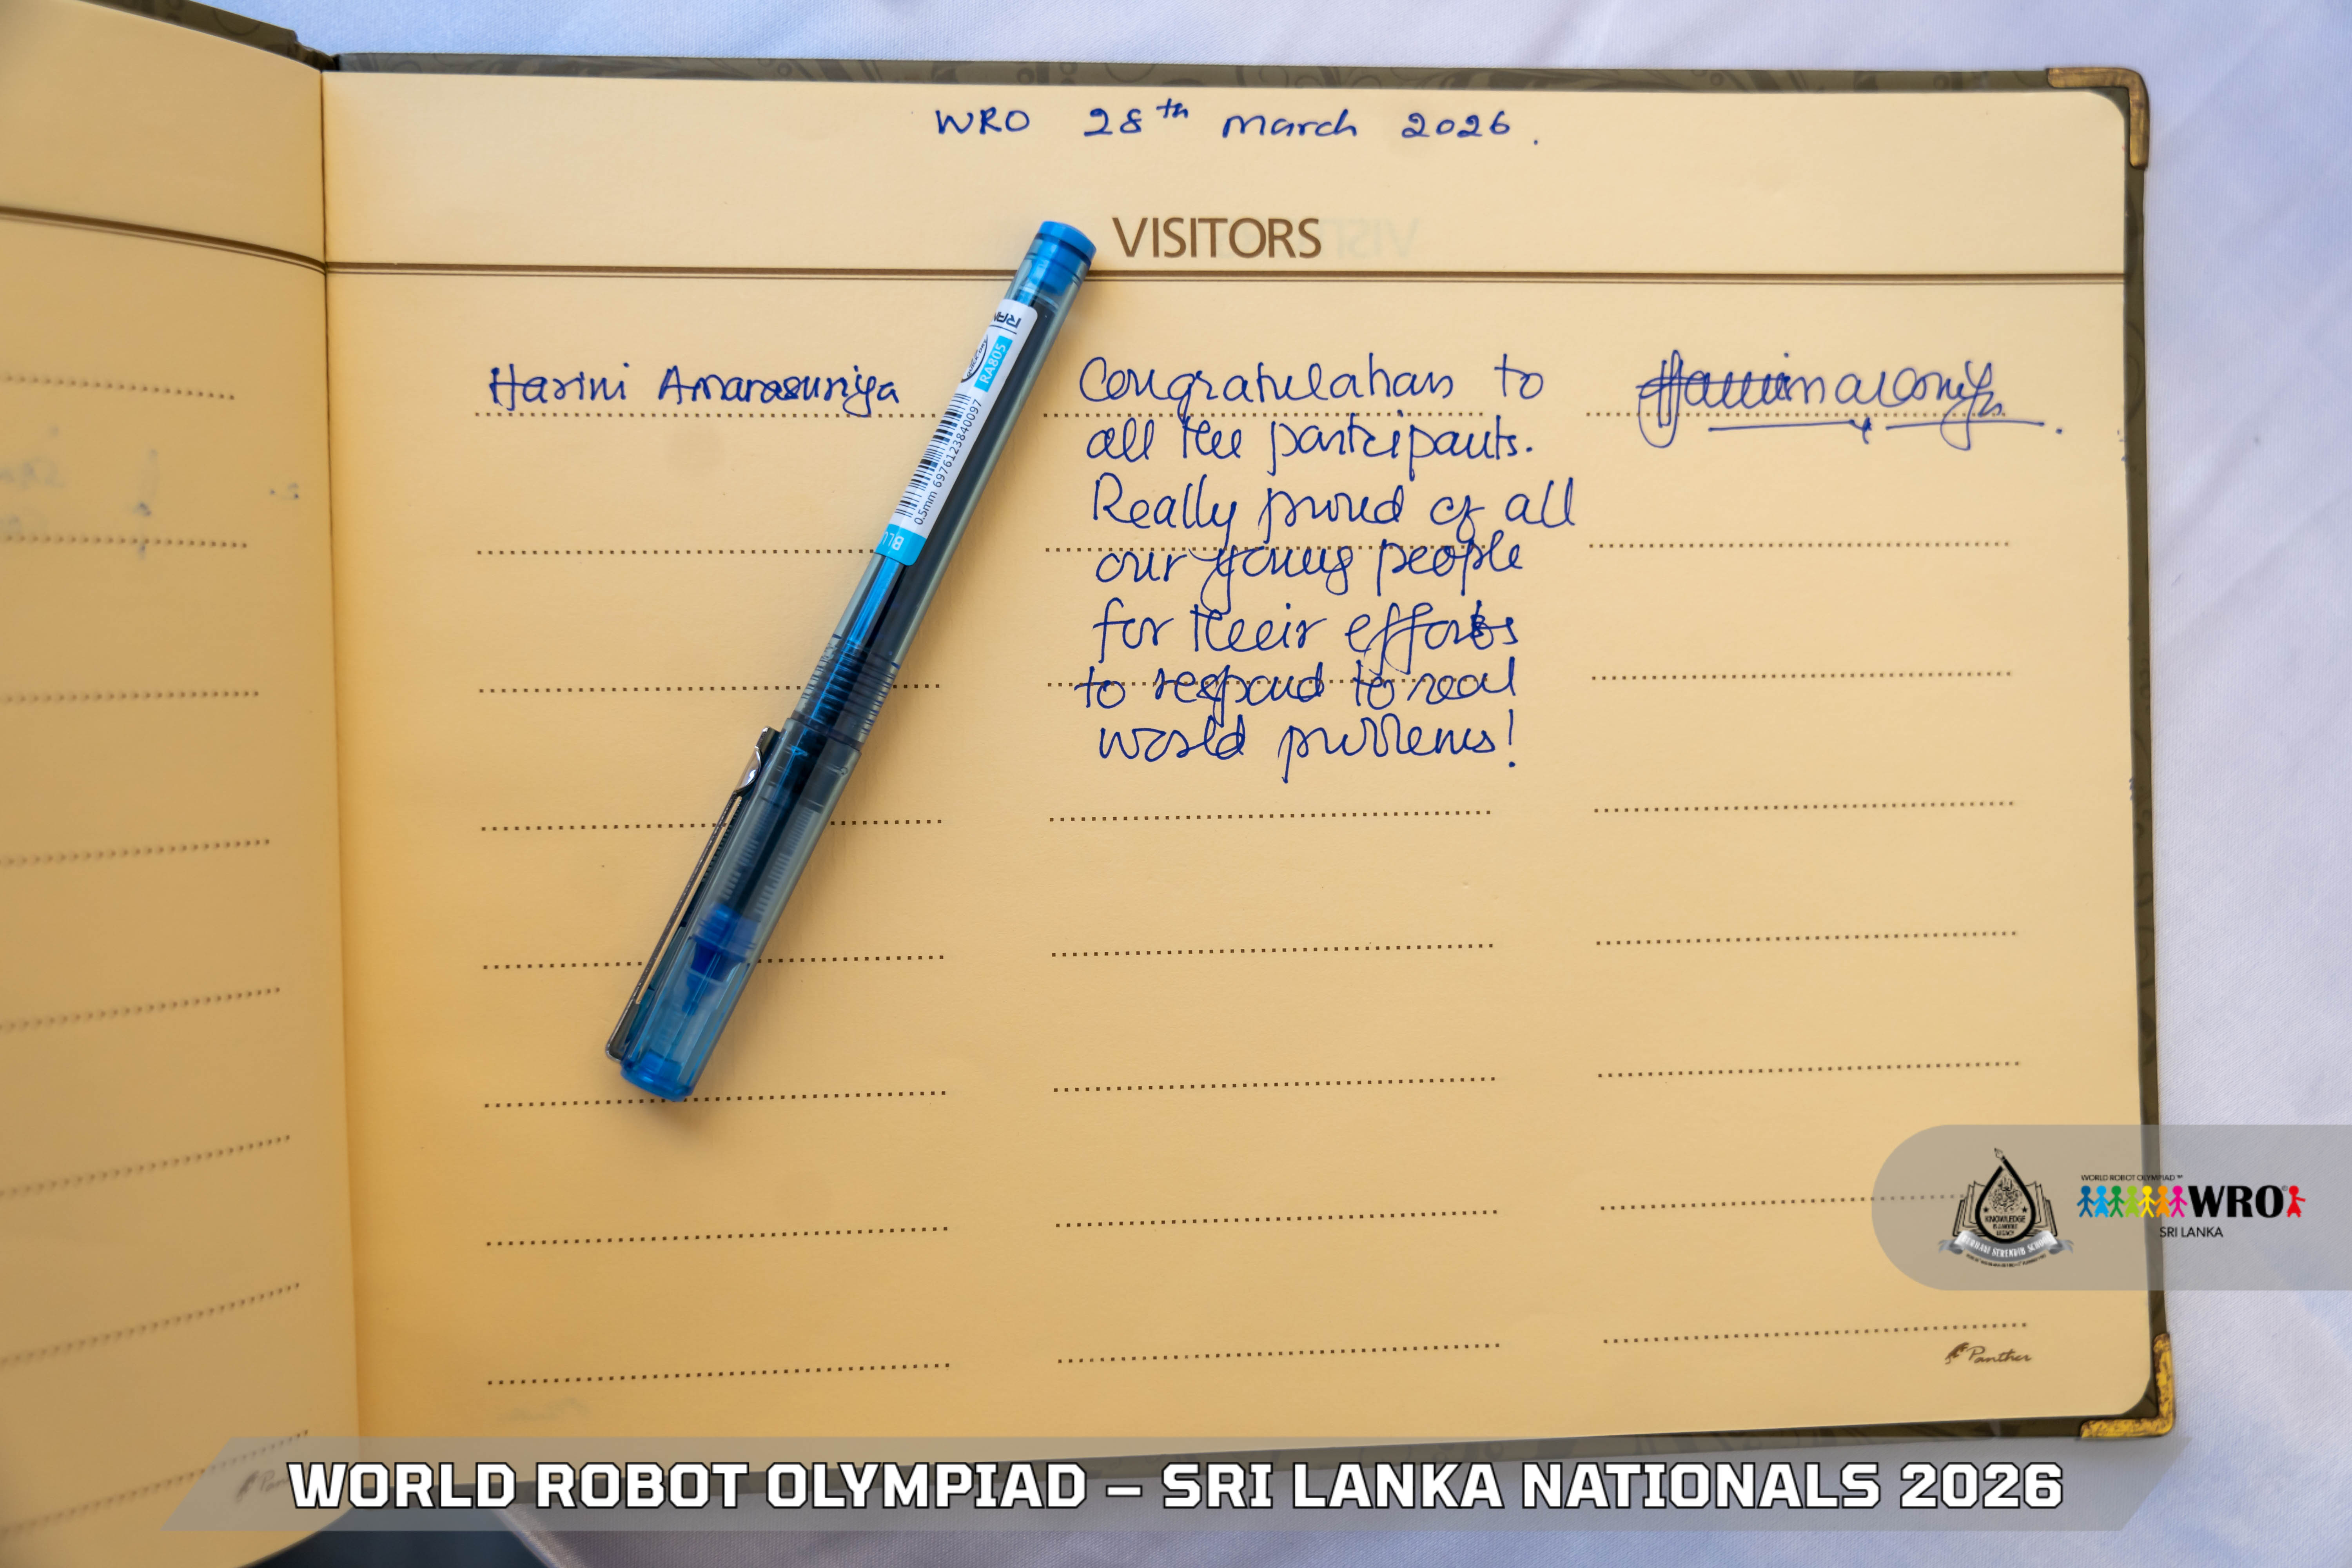 WRO 28th March 2026.
VISITORS
Harini Amarasuriya
Congratulations to
all the participants.
Really proud of all
our young people
for their efforts
to respond to real
world problems!
RA805
0.5mm 6976123840097
KNOWLEDGE
WORLD ROBOT OLYMPIAD™
WRO
SRI LANKA
Panther
WORLD ROBOT OLYMPIAD – SRI LANKA NATIONALS 2026